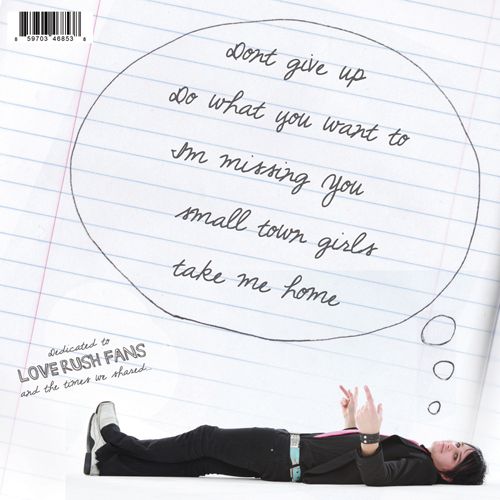 8 59703 46853 8
Dont give up
Do what you want to
Im missing you
small town girls
take me home
Dedicated to
LOVE RUSH FANS
and the times we shared...